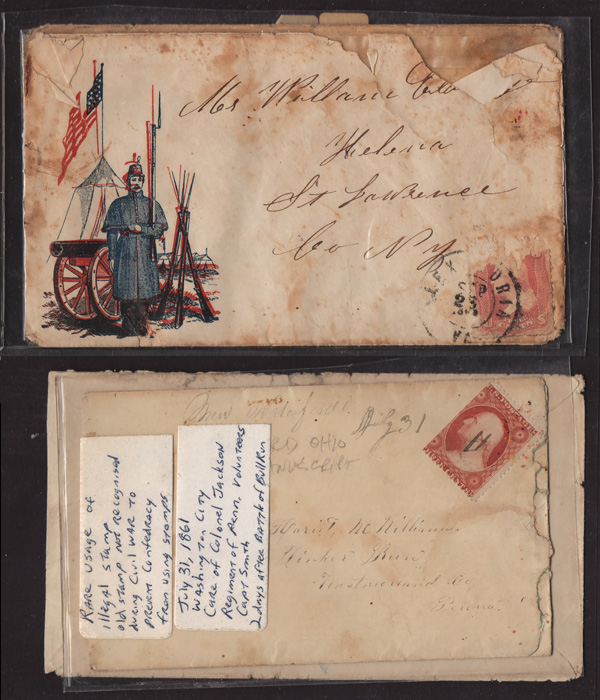 Mrs William
Helena
St Lawrence
Co NY
DRIA
New Waterford O.
July 31
RD OHIO
NUSCRIPT
11
Harriet McWilliams
Tinker Run
Westmoreland Co
Penna
RARE USAGE OF
illegal stamp
old stamp not recognised
during Civil WAR TO
prevent Confederacy
from using stamps
July 31, 1861
WAShington City
Care of Colonel Jackson
Regiment of Penn. Volunteers
Capt Smith
2 days after Battle of Bull Run